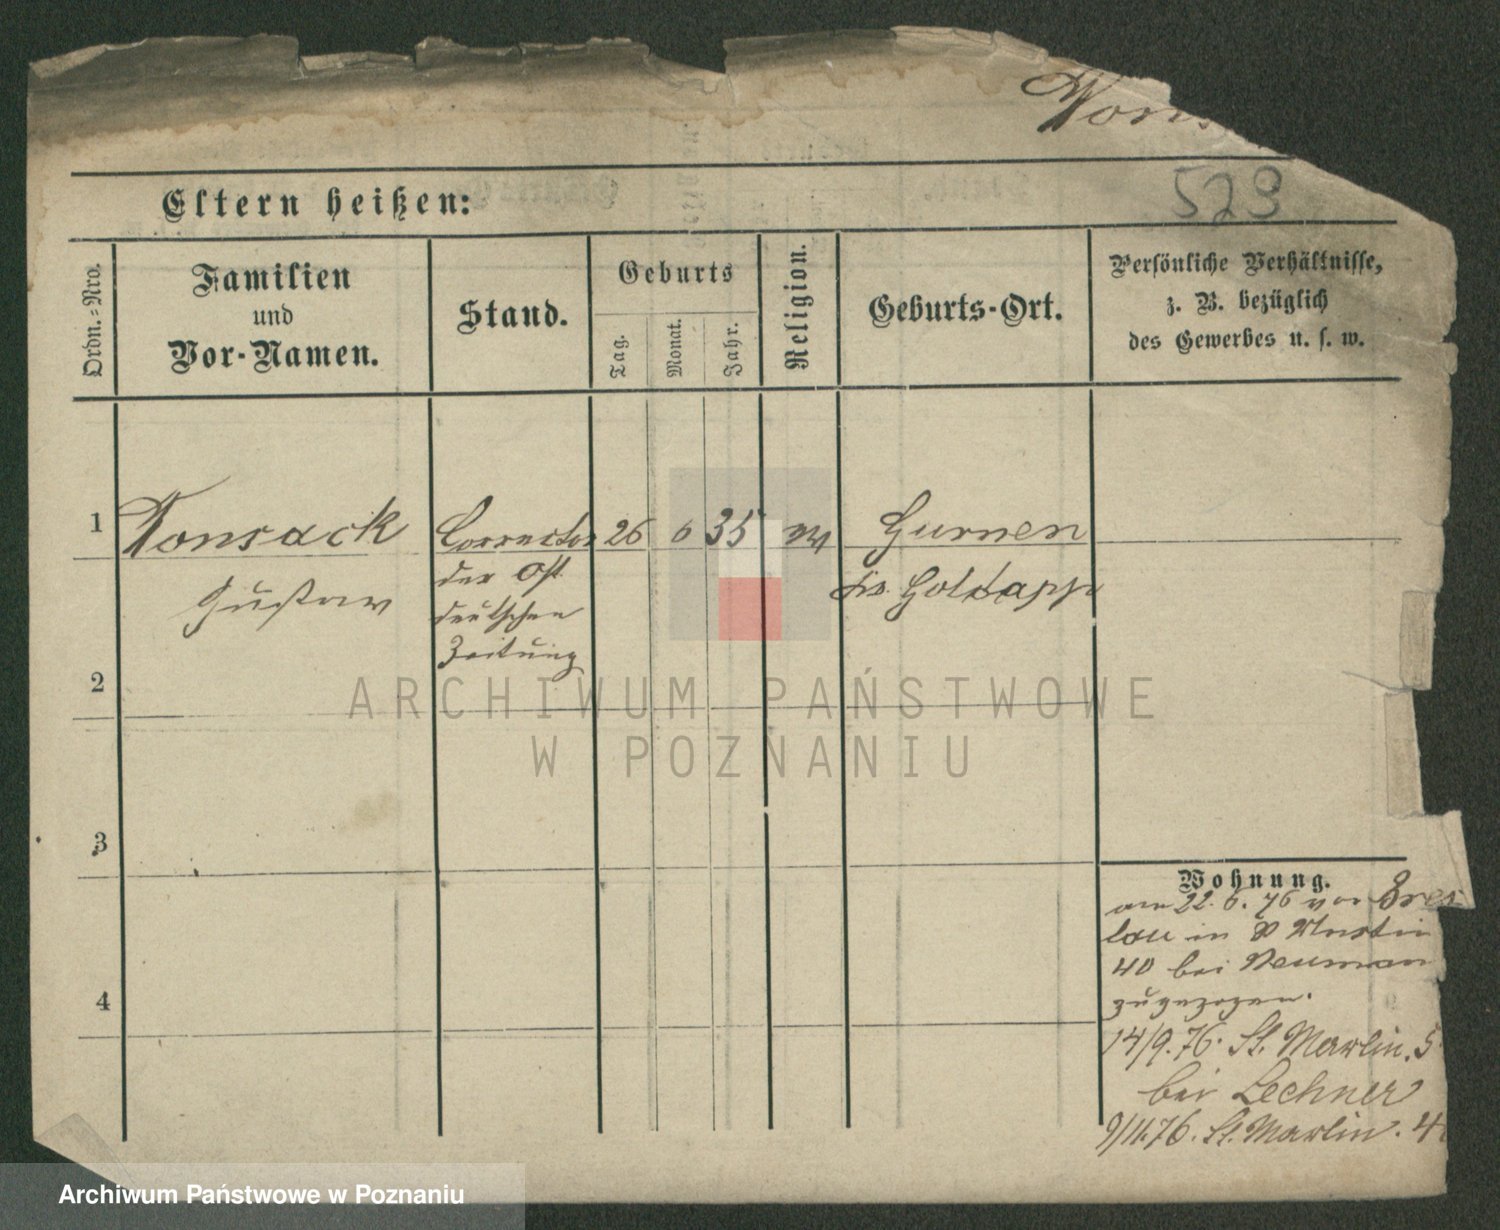 Wons
523
Eltern heißen:
Ordn.=Nro.
Familien
und
Vor-Namen.
Stand.
Geburts
Tag.
Monat.
Jahr.
Religion.
Geburts-Ort.
Persönliche Verhältnisse,
z. B. bezüglich
des Gewerbes u. s. w.
1 Wonsack Corrector 26 6 35 Gurnen
Gustav der Ost
deutschen
Zeitung
Goldapp
2
3
4
Wohnung.
am 22. 6. 76 von Bres
lau in St Martin
40 bei Neuman
zugezogen.
14/9. 76. St. Martin. 5
bei Lechner
9/11.76. St. Martin. 4
ARCHIWUM PAŃSTWOWE
W POZNANIU
Archiwum Państwowe w Poznaniu